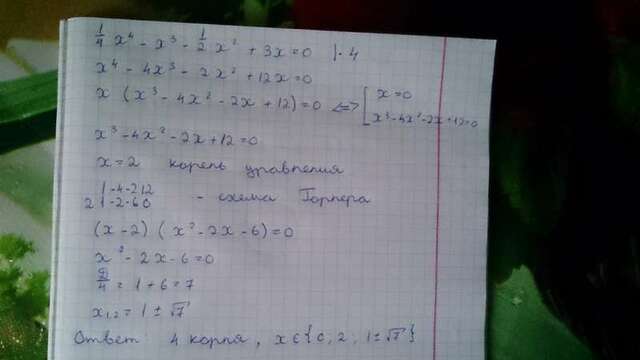 1/4 x⁴ - x³ - 1/2 x² + 3x = 0 |· 4
x⁴ - 4x³ - 2x² + 12x = 0
x (x³ - 4x² - 2x + 12) = 0 <=> [ x = 0
x³ - 4x² - 2x + 12 = 0
x³ - 4x² - 2x + 12 = 0
x = 2 корень уравнения
1 -4 -2 12
2 1 -2 -6 0 - схема Горнера
(x - 2) (x² - 2x - 6) = 0
x² - 2x - 6 = 0
D/4 = 1 + 6 = 7
x₁,₂ = 1 ± √7
Ответ 4 корня, x ∈ {0; 2; 1 ± √7}